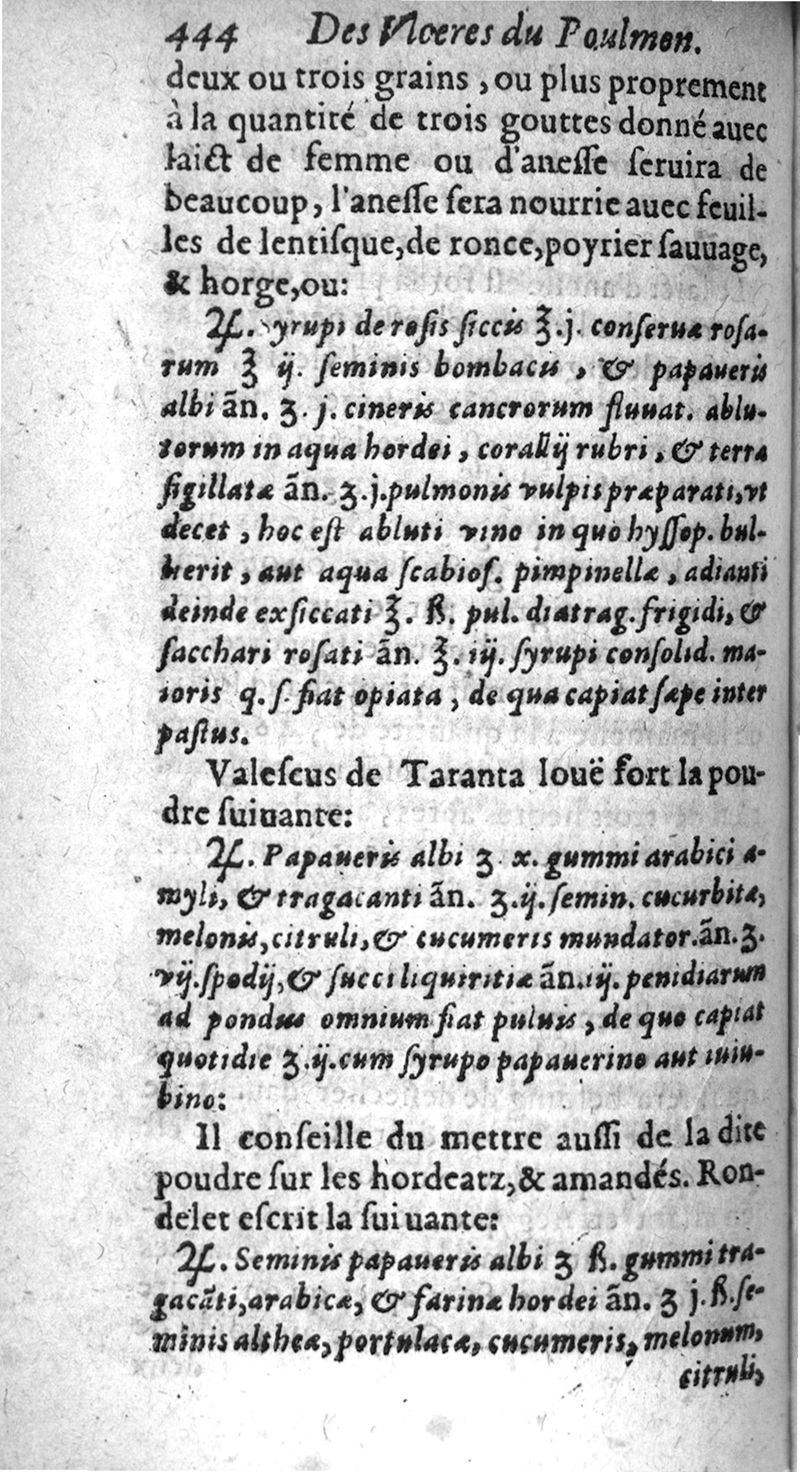 444 Des Vlceres du Poulmon.
deux ou trois grains, ou plus proprement
à la quantité de trois gouttes donné auec
laict de femme ou d'anesſe ſeruira de
beaucoup, l'aneſſe ſera nourrie auec feuil-
les de lentiſque,de ronce,poyrier ſauuage,
& horge,ou:
℞. Syrupi de roſis ſiccis ℥.j. conſeruæ roſa-
rum ℥ ij. ſeminis bombacis, & papaueris
albi ān. ʒ. j. cineris cancrorum fluuat. ablu-
torum in aqua hordei, corallij rubri, & terra
ſigillatæ ān. ʒ.j.pulmonis vulpis præparati,vt
decet, hoc eſt abluti vino in quo hyſſop. bul-
lierit, aut aqua ſcabioſ. pimpinellæ, adianti
deinde exſiccati ℥. ß. pul. diatrag.frigidi, &
ſacchari roſati ān. ℥. iij. ſyrupi conſolid. ma-
ioris q. ſ. fiat opiata, de qua capiat ſæpe inter
paſtus.
Valeſcus de Taranta louë fort la pou-
dre ſuiuante:
℞. Papaueris albi ʒ x. gummi arabici a-
myli, & tragacanti ān. ʒ.ij.ſemin. cucurbitæ,
melonis,citruli,& cucumeris mundator.ān.ʒ.
vij.ſpodij,& ſucci liquiritiæ ān.iij. penidiarum
ad pondus omnium fiat puluis, de quo capiat
quotidie ʒ.ij.cum ſyrupo papauerino aut iuiu-
bino:
Il conſeille du mettre auſſi de la dite
poudre ſur les hordeatz,& amandés. Ron-
delet eſcrit la ſuiuante:
℞. Seminis papaueris albi ʒ ß. gummi tra-
gacāti,arabicæ, & farinæ hordei ān. ʒ j.ß.ſe-
minis altheæ, portulacæ, cucumeris, melonum,
citruli,